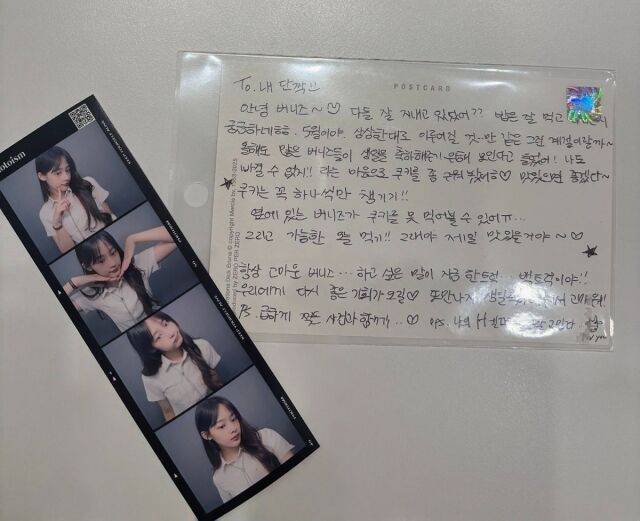 otoism
To. 내 단짝!!
POSTCARD
안녕 버니즈~ ♡ 다들 잘 지내고 있었어?? 밥은 잘 먹고
궁금하네ㅎㅎ. 5월이야. 상상한대로 이루어질 것-만 같은 그런 계절이랄까~
올해도 많은 버니즈들이 생일을 축하해주기 위해 모인다고 들었어! 나도
빠질 수 없지!! 라는 마음으로 쿠키를 좀 구워 봤어ㅎㅎ♡ 맛있으면 좋겠다~
쿠키는 꼭 하나씩만 챙기기!!
옆에 있는 버니즈가 쿠키를 못 먹어볼 수 있어ㅠ...
그리고 가능한 빨리 먹기!! 그래야 제일 맛있을거야~♡
항상 고마운 버니즈... 하고 싶은 말이 지금 한트럭... 백트럭이야!!
우리에게 다시 좋은 기회가 오길♡ 또 만나자 고마워!
PS. 급하게 찍은 사진과 함께.. ♡
for you